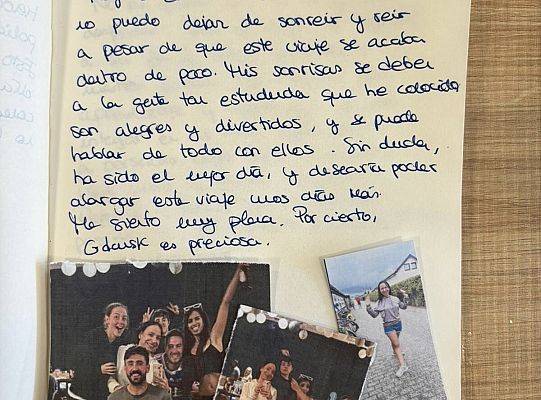 no puedo dejar de sonreír y reír
a pesar de que este viaje se acaba
dentro de poco. Mis sonrisas se deben
a la gente tan estupenda que he conocido,
son alegres y divertidos, y se puede
hablar de todo con ellos. Sin duda,
ha sido el mejor día, y desearía poder
alargar este viaje unos días más.
Me siento muy plena. Por cierto,
Gdansk es preciosa.